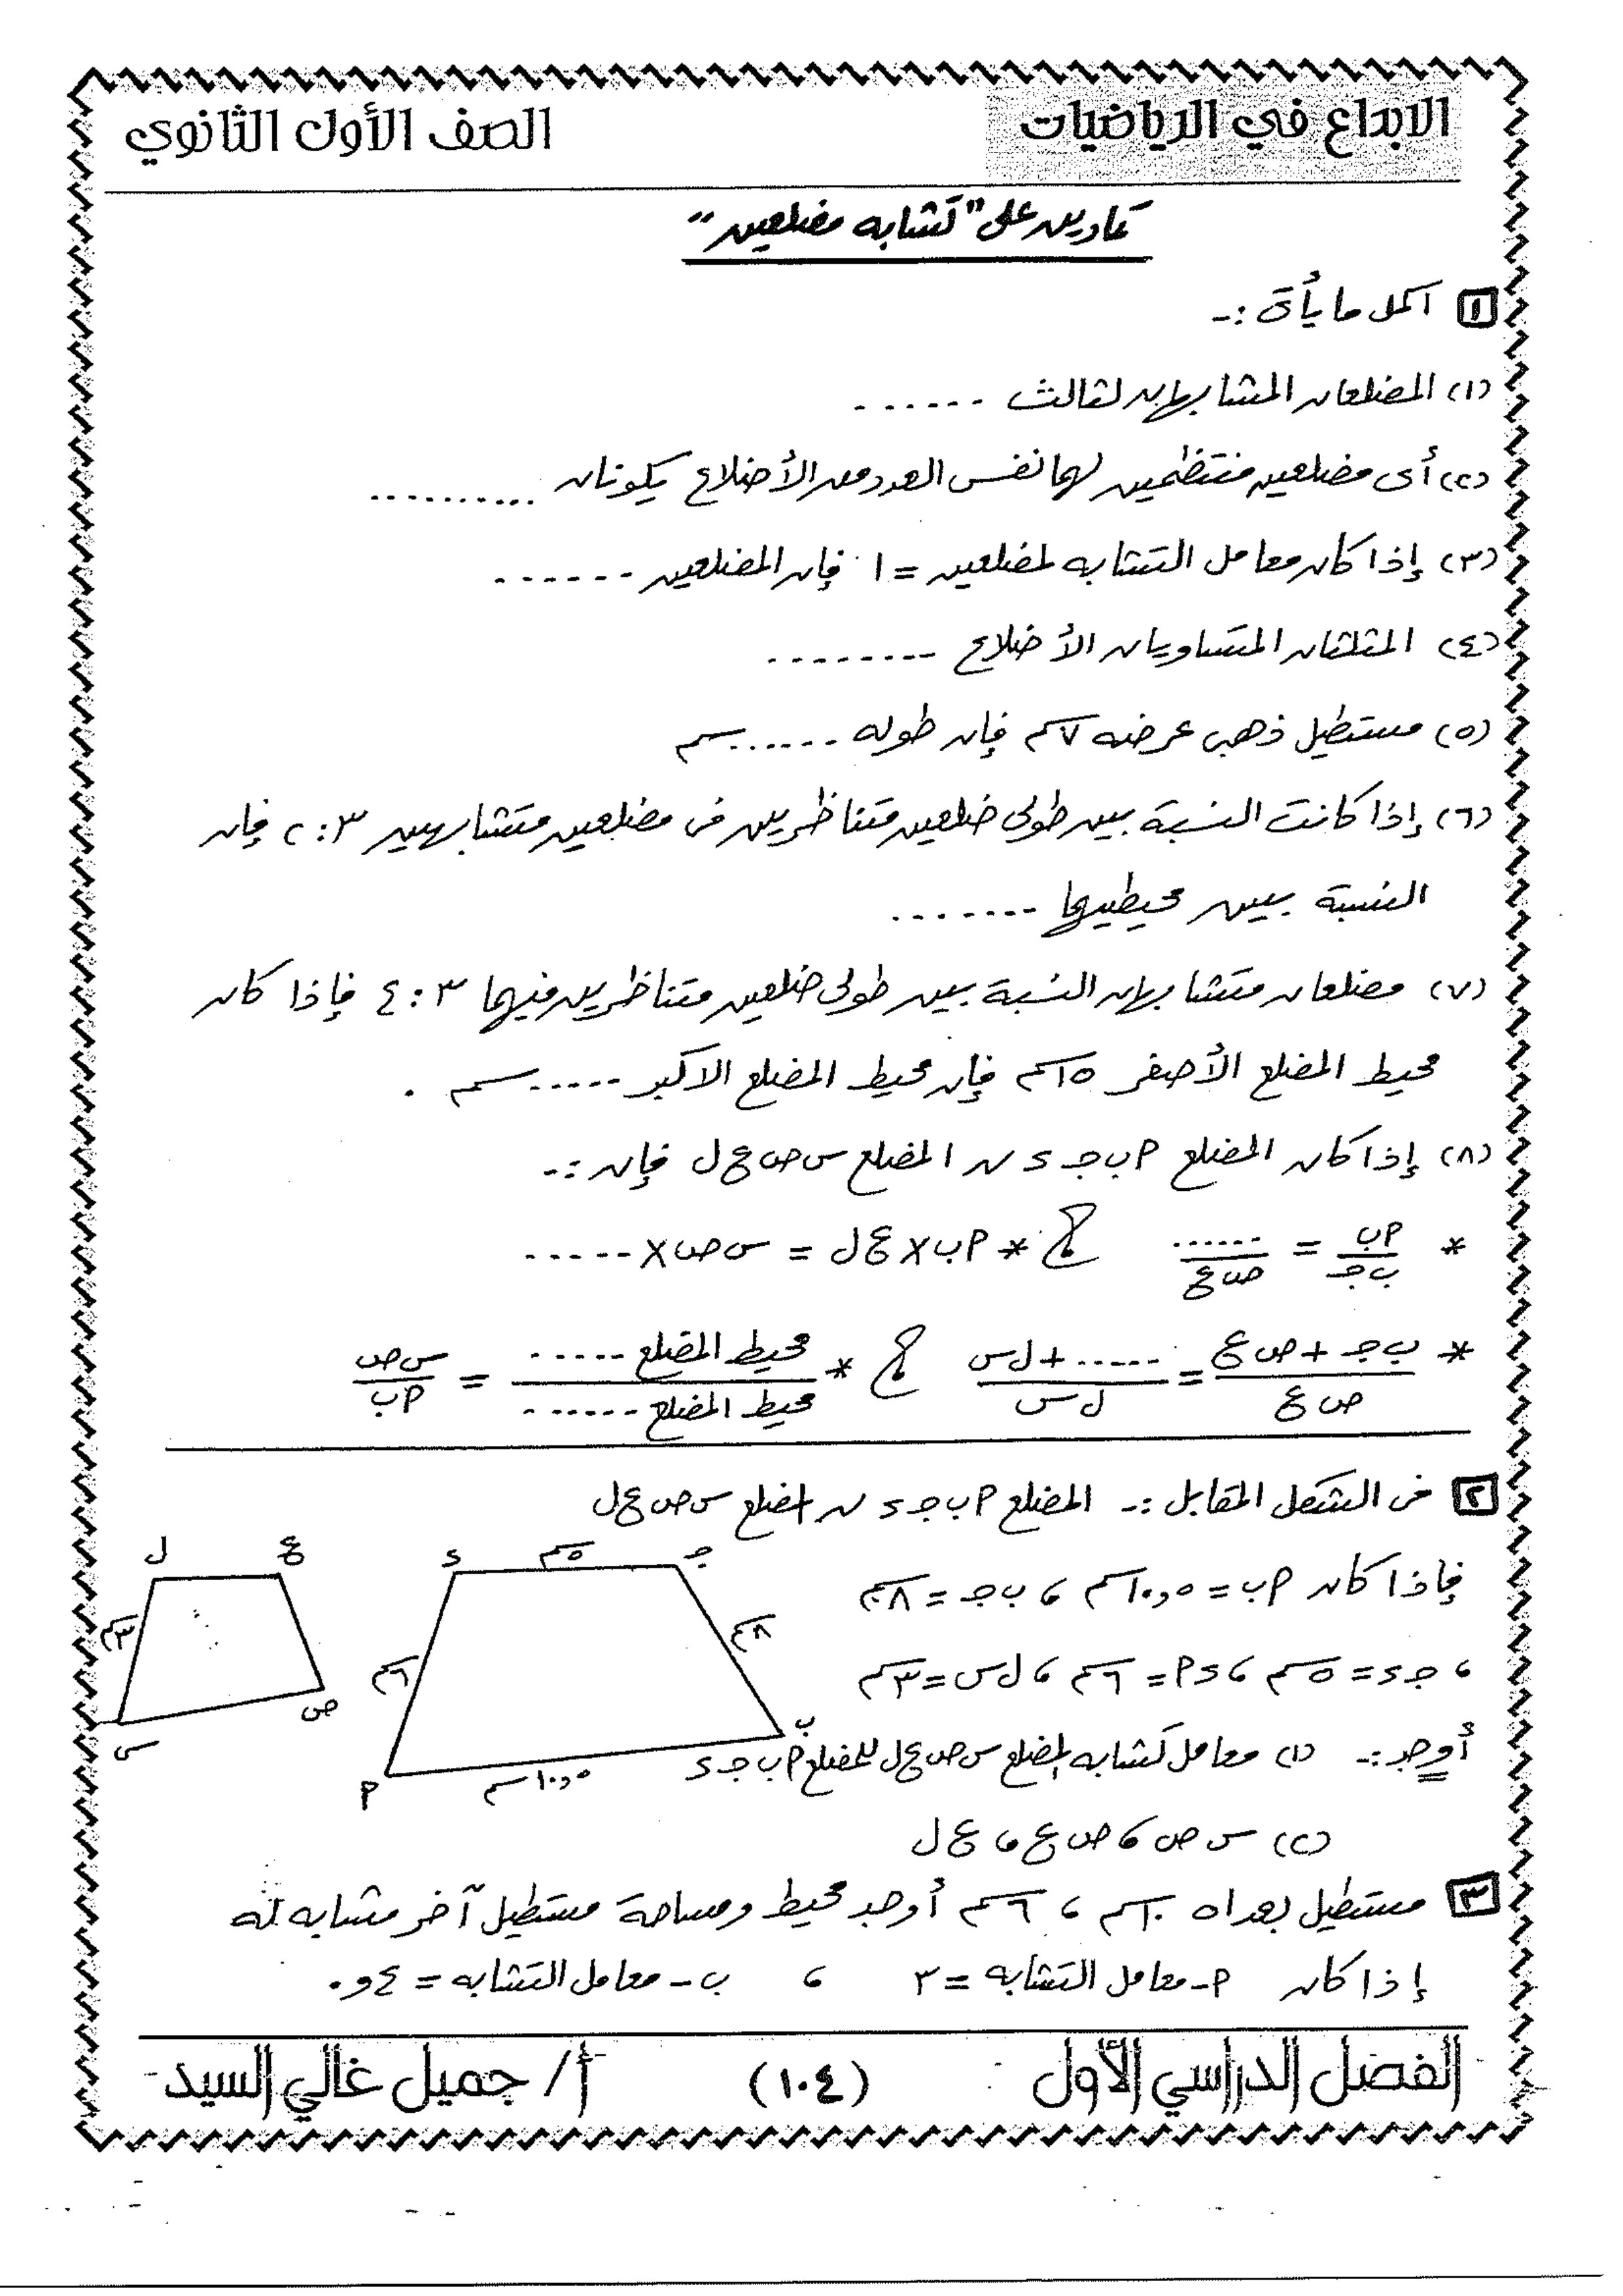 الابداع في الرياضيات
الصف الأول الثانوي
تمارين على "تشابه مضلعين"
١ أكمل ما يأتى :-
(١) المضلعان المشابهان لثالث ......
(٢) أى مضلعين منتظمين لهما نفس العدد من الأضلاع يكونان ..........
(٣) إذا كان معامل التشابه لمضلعين = ١ فإن المضلعين ......
(٤) المثلثان المتساويان الأضلاع ........
(٥) مستطيل ذهبى عرضه ٧سم فإن طوله ...... سم
(٦) إذا كانت النسبة بين طولى ضلعين متناظرين فى مضلعين متشابهين ٣ : ٢ فإن
النسبة بين محيطيهما .......
(٧) مضلعان متشابهان النسبة بين طولى ضلعين متناظرين فيهما ٣ : ٤ فإذا كان
محيط المضلع الأصغر ١٥سم فإن محيط المضلع الاكبر ..... سم .
(٨) إذا كان المضلع ٢ب جـ ء ~ المضلع س ص ع ل فإن :-
* ٢ب / ب جـ = ...... / ص ع ، * ٢ب × ع ل = س ص × .....
* ب جـ + ص ع / ص ع = ..... + ل س / ل س ، * محيط المضلع ..... / محيط المضلع ...... = س ص / ٢ب
٢ فى الشكل المقابل :- المضلع ٢ب جـ ء ~ المضلع س ص ع ل
فإذا كان ٢ب = ١٠,٥ سم ، ب جـ = ٨سم
، جـ ء = ٥سم ، ء٢ = ٦سم ، ل س = ٣سم
أوجد :- (١) معامل تشابه المضلع س ص ع ل للمضلع ٢ب جـ ء
(٢) س ص ، ص ع ، ع ل
ل
ع
ص
س
٣سم
ء
جـ
ب
٢
٥سم
٨سم
٦سم
١٠,٥ سم
٣ مستطيل بعداه ١٠سم ، ٦سم أوجد محيط ومساحة مستطيل آخر مشابه له
إذا كان ٢- معامل التشابه = ٣ ، ب - معامل التشابه = ٠,٤
الفصل الدراسي الأول
(١٠٤)
أ/ جميل غالي السيد